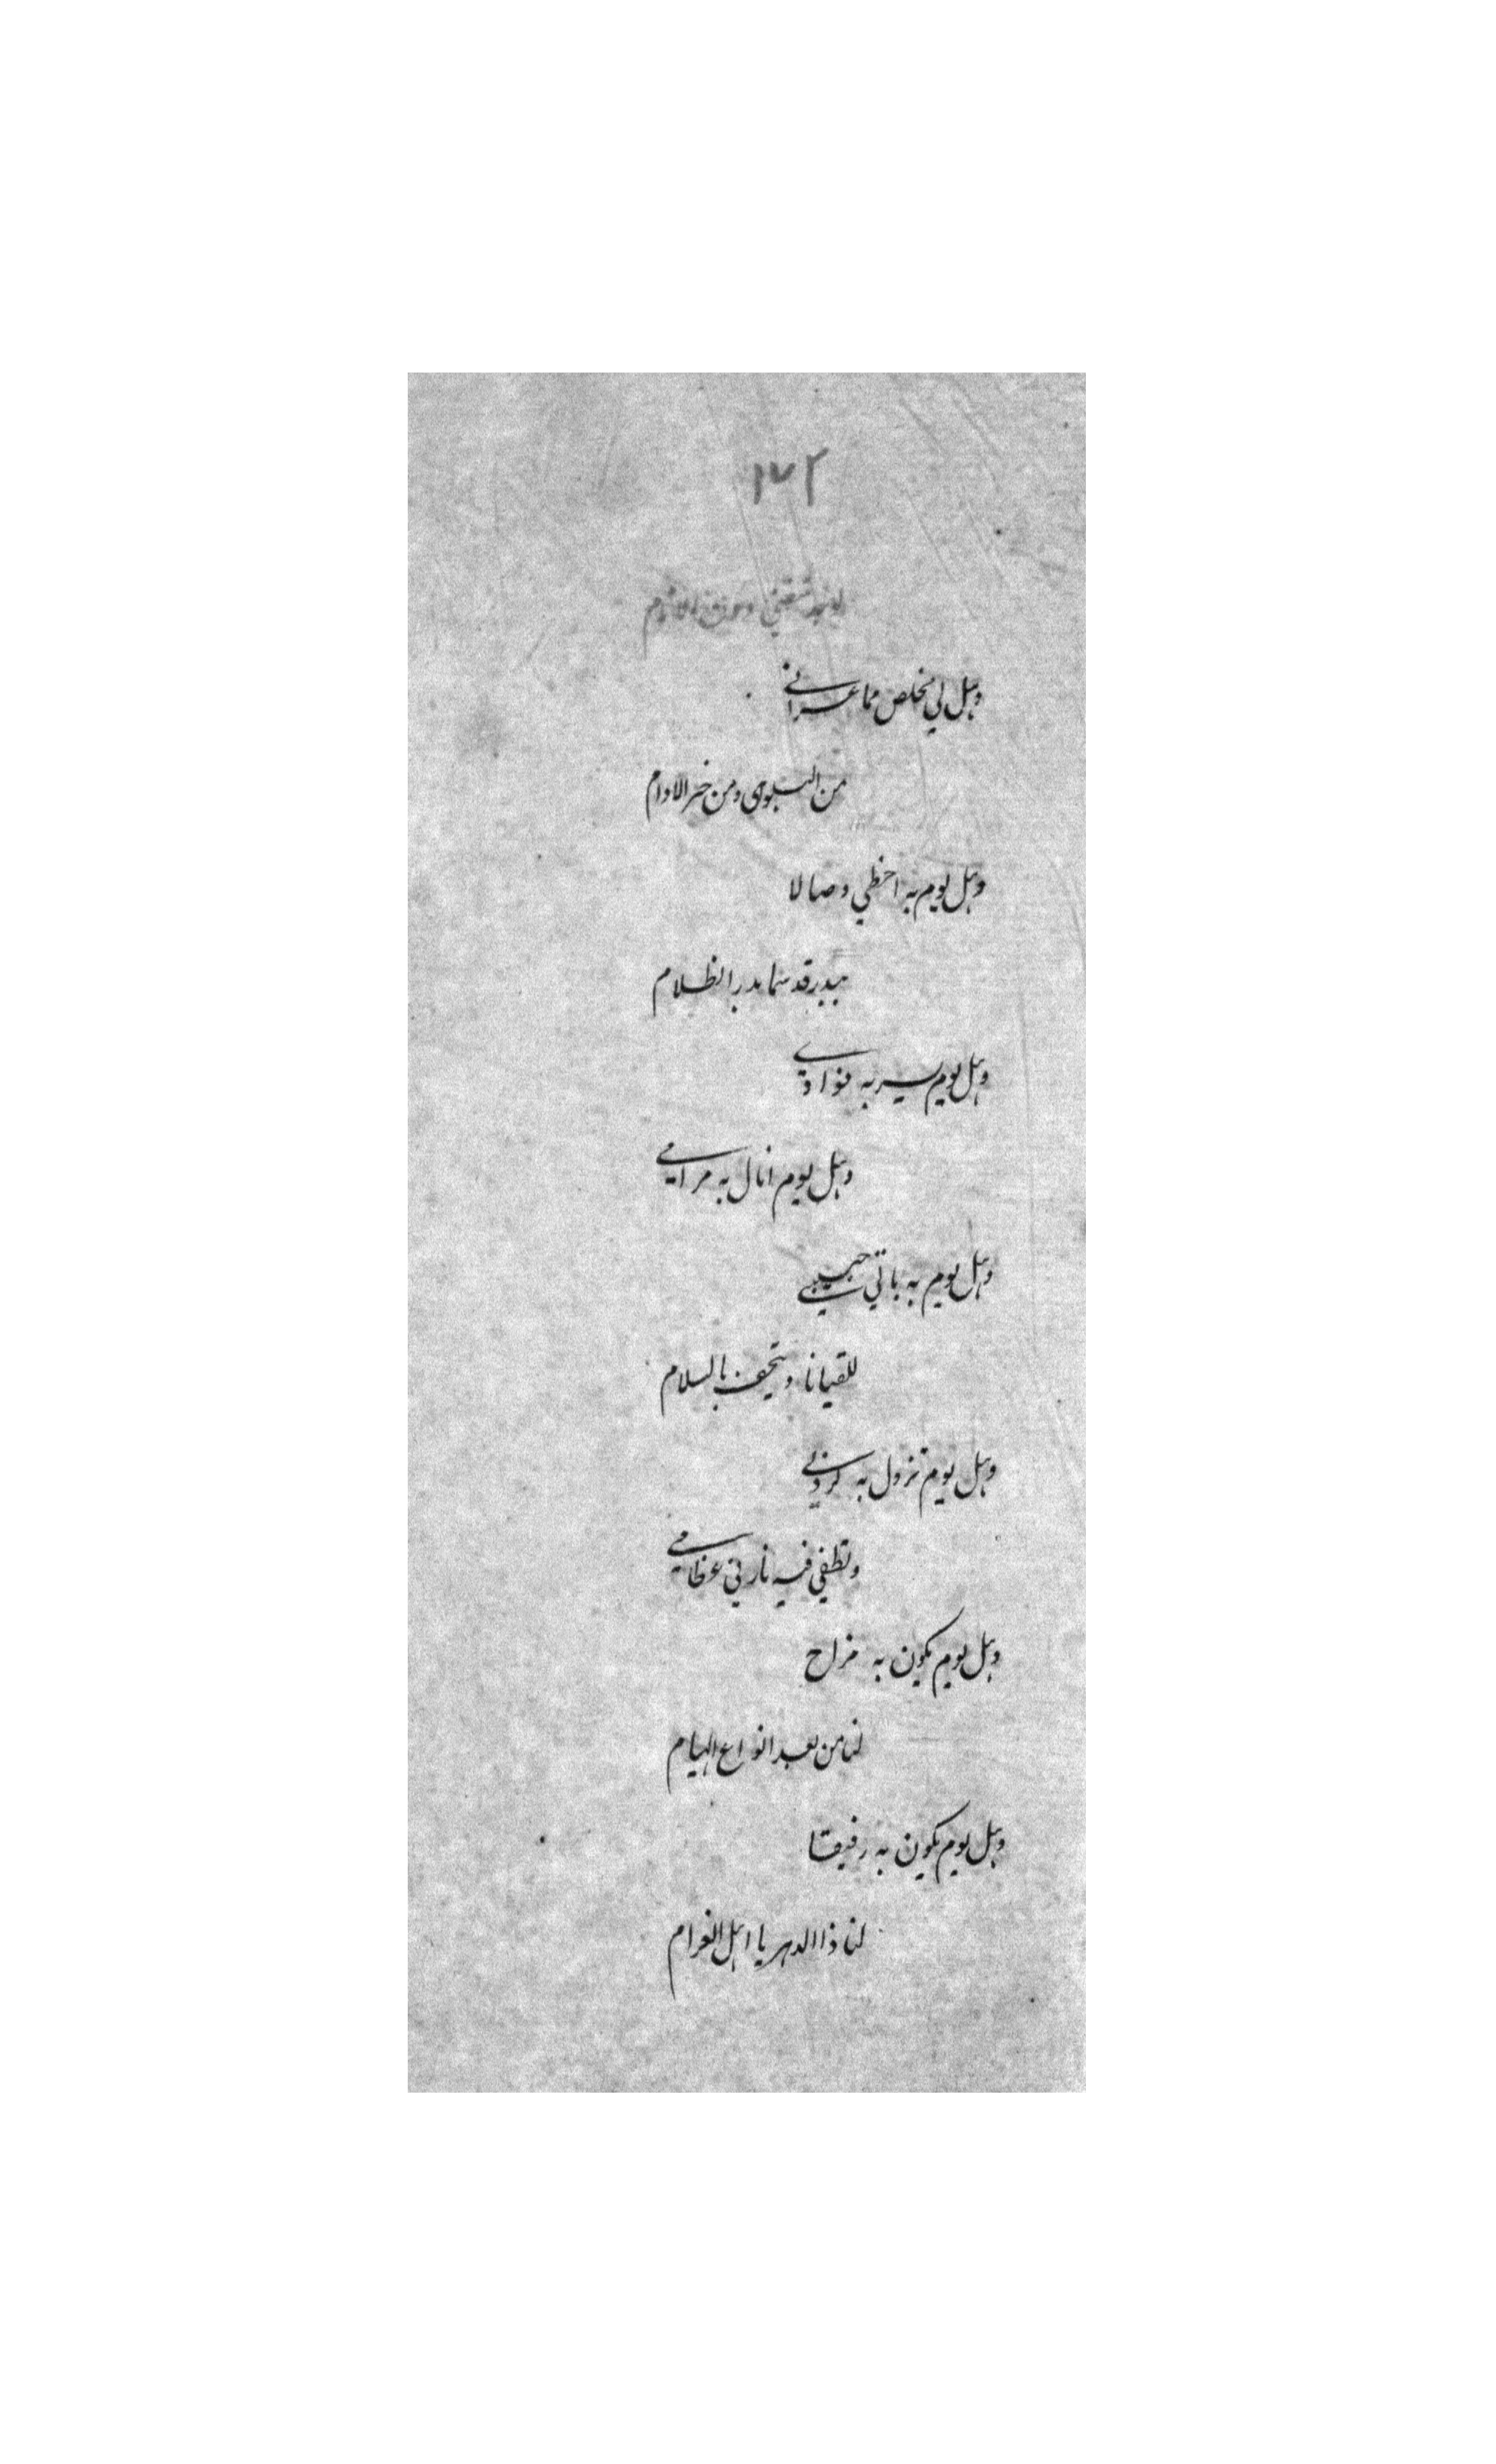 ١٧٢
وهل لي مخلص مما عراني
من البلوى ومن حر الاوام
وهل يوم به احظي وصالا
ببدر قد سما بدر الظلام
وهل يوم يسر به فوادي
وهل يوم انال به مرامي
وهل يوم به ياتي حبيبي
للقيانا ويتحف بالسلام
وهل يوم تزول به كروبي
وتطفي فيه نار في عظامي
وهل يوم يكون به مزاح
لنا من بعد انواع الهيام
وهل يوم يكون به رفيقا
لنا ذا الدهر يا اهل الغرام